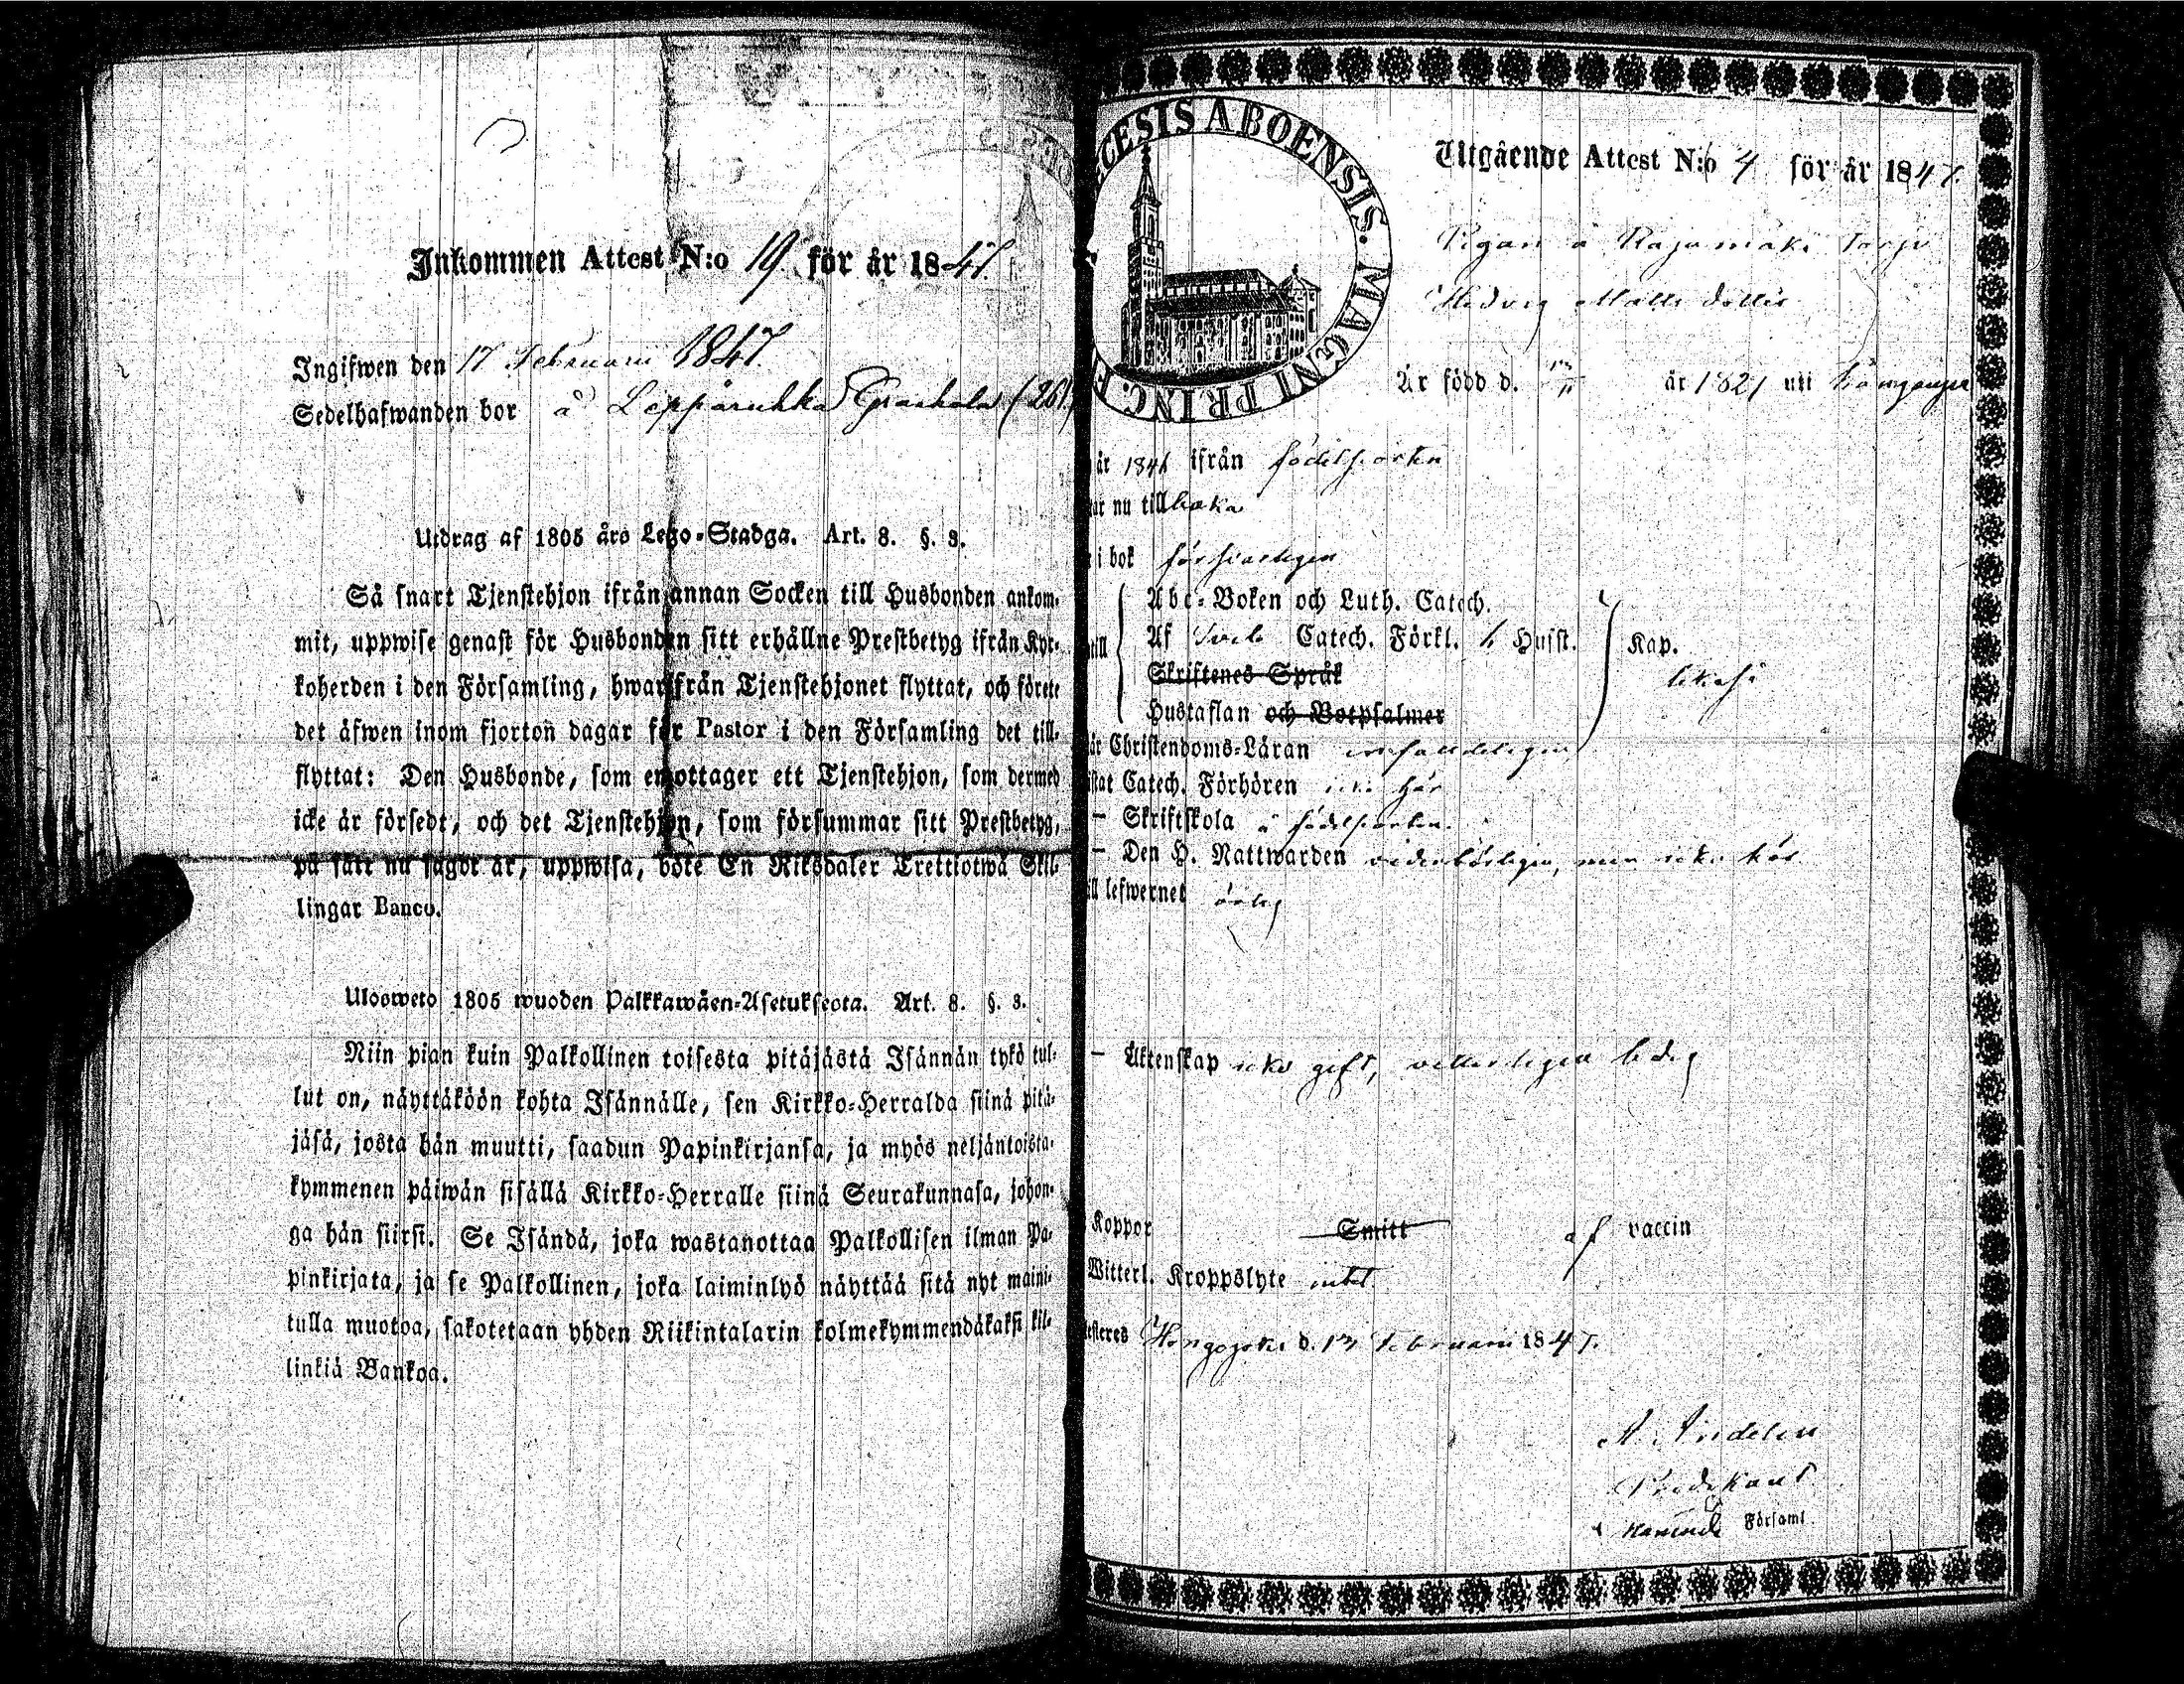 Inkommen Attest N:o 19 för år 1847.
Ingifwen den 17 Februari 1847.
Sedelhafwanden bor å
Utdrag af 1805 års Lego-Stadga. Art. 8. §. 3.
Så snart Tjenstehjon ifrån annan Socken till Husbonden ankom-
mit, uppwise genast för Husbonden sitt erhållne Prestbetyg ifrån Kyr-
koherden i den Församling, hwarifrån Tjenstehjonet flyttat, och förete
det äfwen inom fjorton dagar för Pastor i den Församling det till-
flyttat: Den Husbonde, som emottager ett Tjenstehjon, som dermed
icke är försedt, och det Tjenstehjon, som försummar sitt Prestbetyg,
på sätt nu sagdt är, uppwisa, böte En Riksdaler Trettiotwå Skil-
lingar Banco.
Ulosweto 1805 wuoden Palkkawäen-Asetuksesta. Art. 8. §. 3.
Niin pian kuin Palkollinen toisesta pitäjästä Isännän tykö tul-
lut on, näyttäköön kohta Isännälle, sen Kirkko-Herralda siinä pitä-
jäsä, josta hän muutti, saadun Papinkirjansa, ja myös neljäntoista-
kymmenen päiwän sisällä Kirkko-Herralle siinä Seurakunnasa, johon-
ga hän siirsi. Se Isändä, joka wastanottaa Palkollisen ilman Pa-
pinkirjata, ja se Palkollinen, joka laiminlyö näyttää sitä nyt maini-
tulla muotoa, sakotetaan yhden Riikintalarin kolmekymmendäkaksi kil-
linkiä Bankoa.
ECESIS ABOENSIS. MAGNI PRINC. F
Utgående Attest N:o 4 för år 1847.
Pigan å Rajamäki Torp
Hedvig Matts dotter
Är född d. år 1821 uti
år 1846 ifrån födelseorten
ar nu tillbaka
i bok försvarligen
till
Abc-Boken och Luth. Catech.
Af Catech. Förkl. Husst.
Skriftenes Språk
Hustaflan och Botpsalmer
Kap.
är Christendoms-Läran
istat Catech. Förhören icke här
— Skriftskola å födelseorten.
— Den H. Nattwarden vederbörligen, men icke här
ill lefwernet ärlig
— Äktenskap icke gift, ledig
Koppor Smitt af vaccin
Witterl. Kroppslyte intet
testeres d. 13 Februarii 1847.
Predikant
Församl.